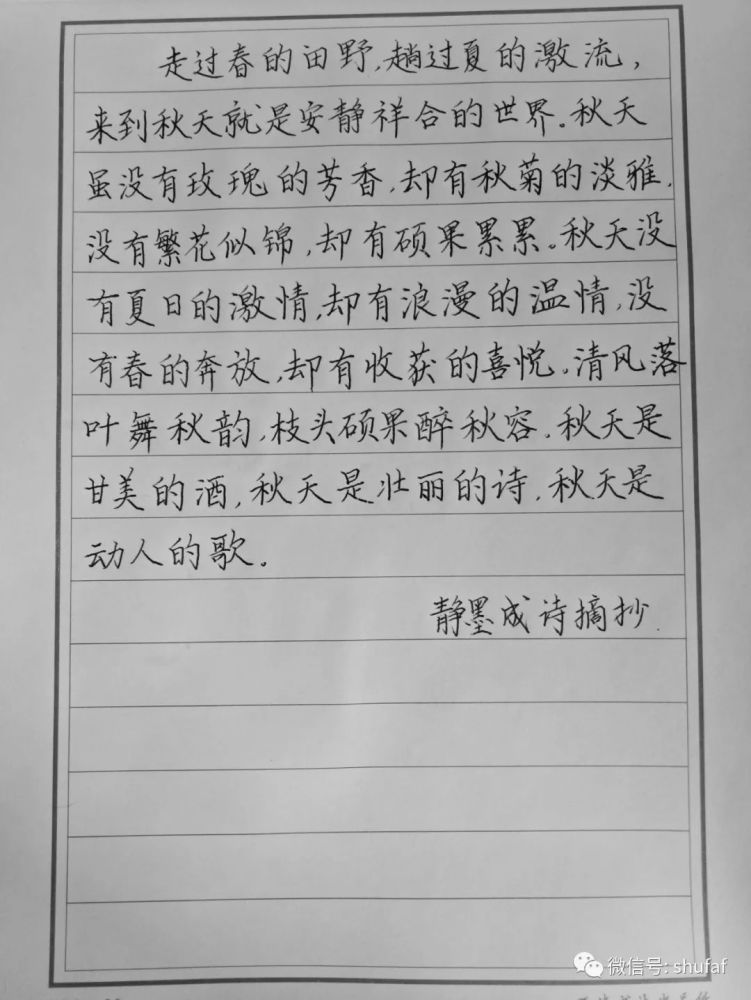 走过春的田野,趟过夏的激流,
来到秋天就是安静祥合的世界。秋天
虽没有玫瑰的芳香,却有秋菊的淡雅,
没有繁花似锦,却有硕果累累。秋天没
有夏日的激情,却有浪漫的温情,没
有春的奔放,却有收获的喜悦。清风落
叶舞秋韵,枝头硕果醉秋容。秋天是
甘美的酒,秋天是壮丽的诗,秋天是
动人的歌。
静墨成诗摘抄.
微信号: shufaf